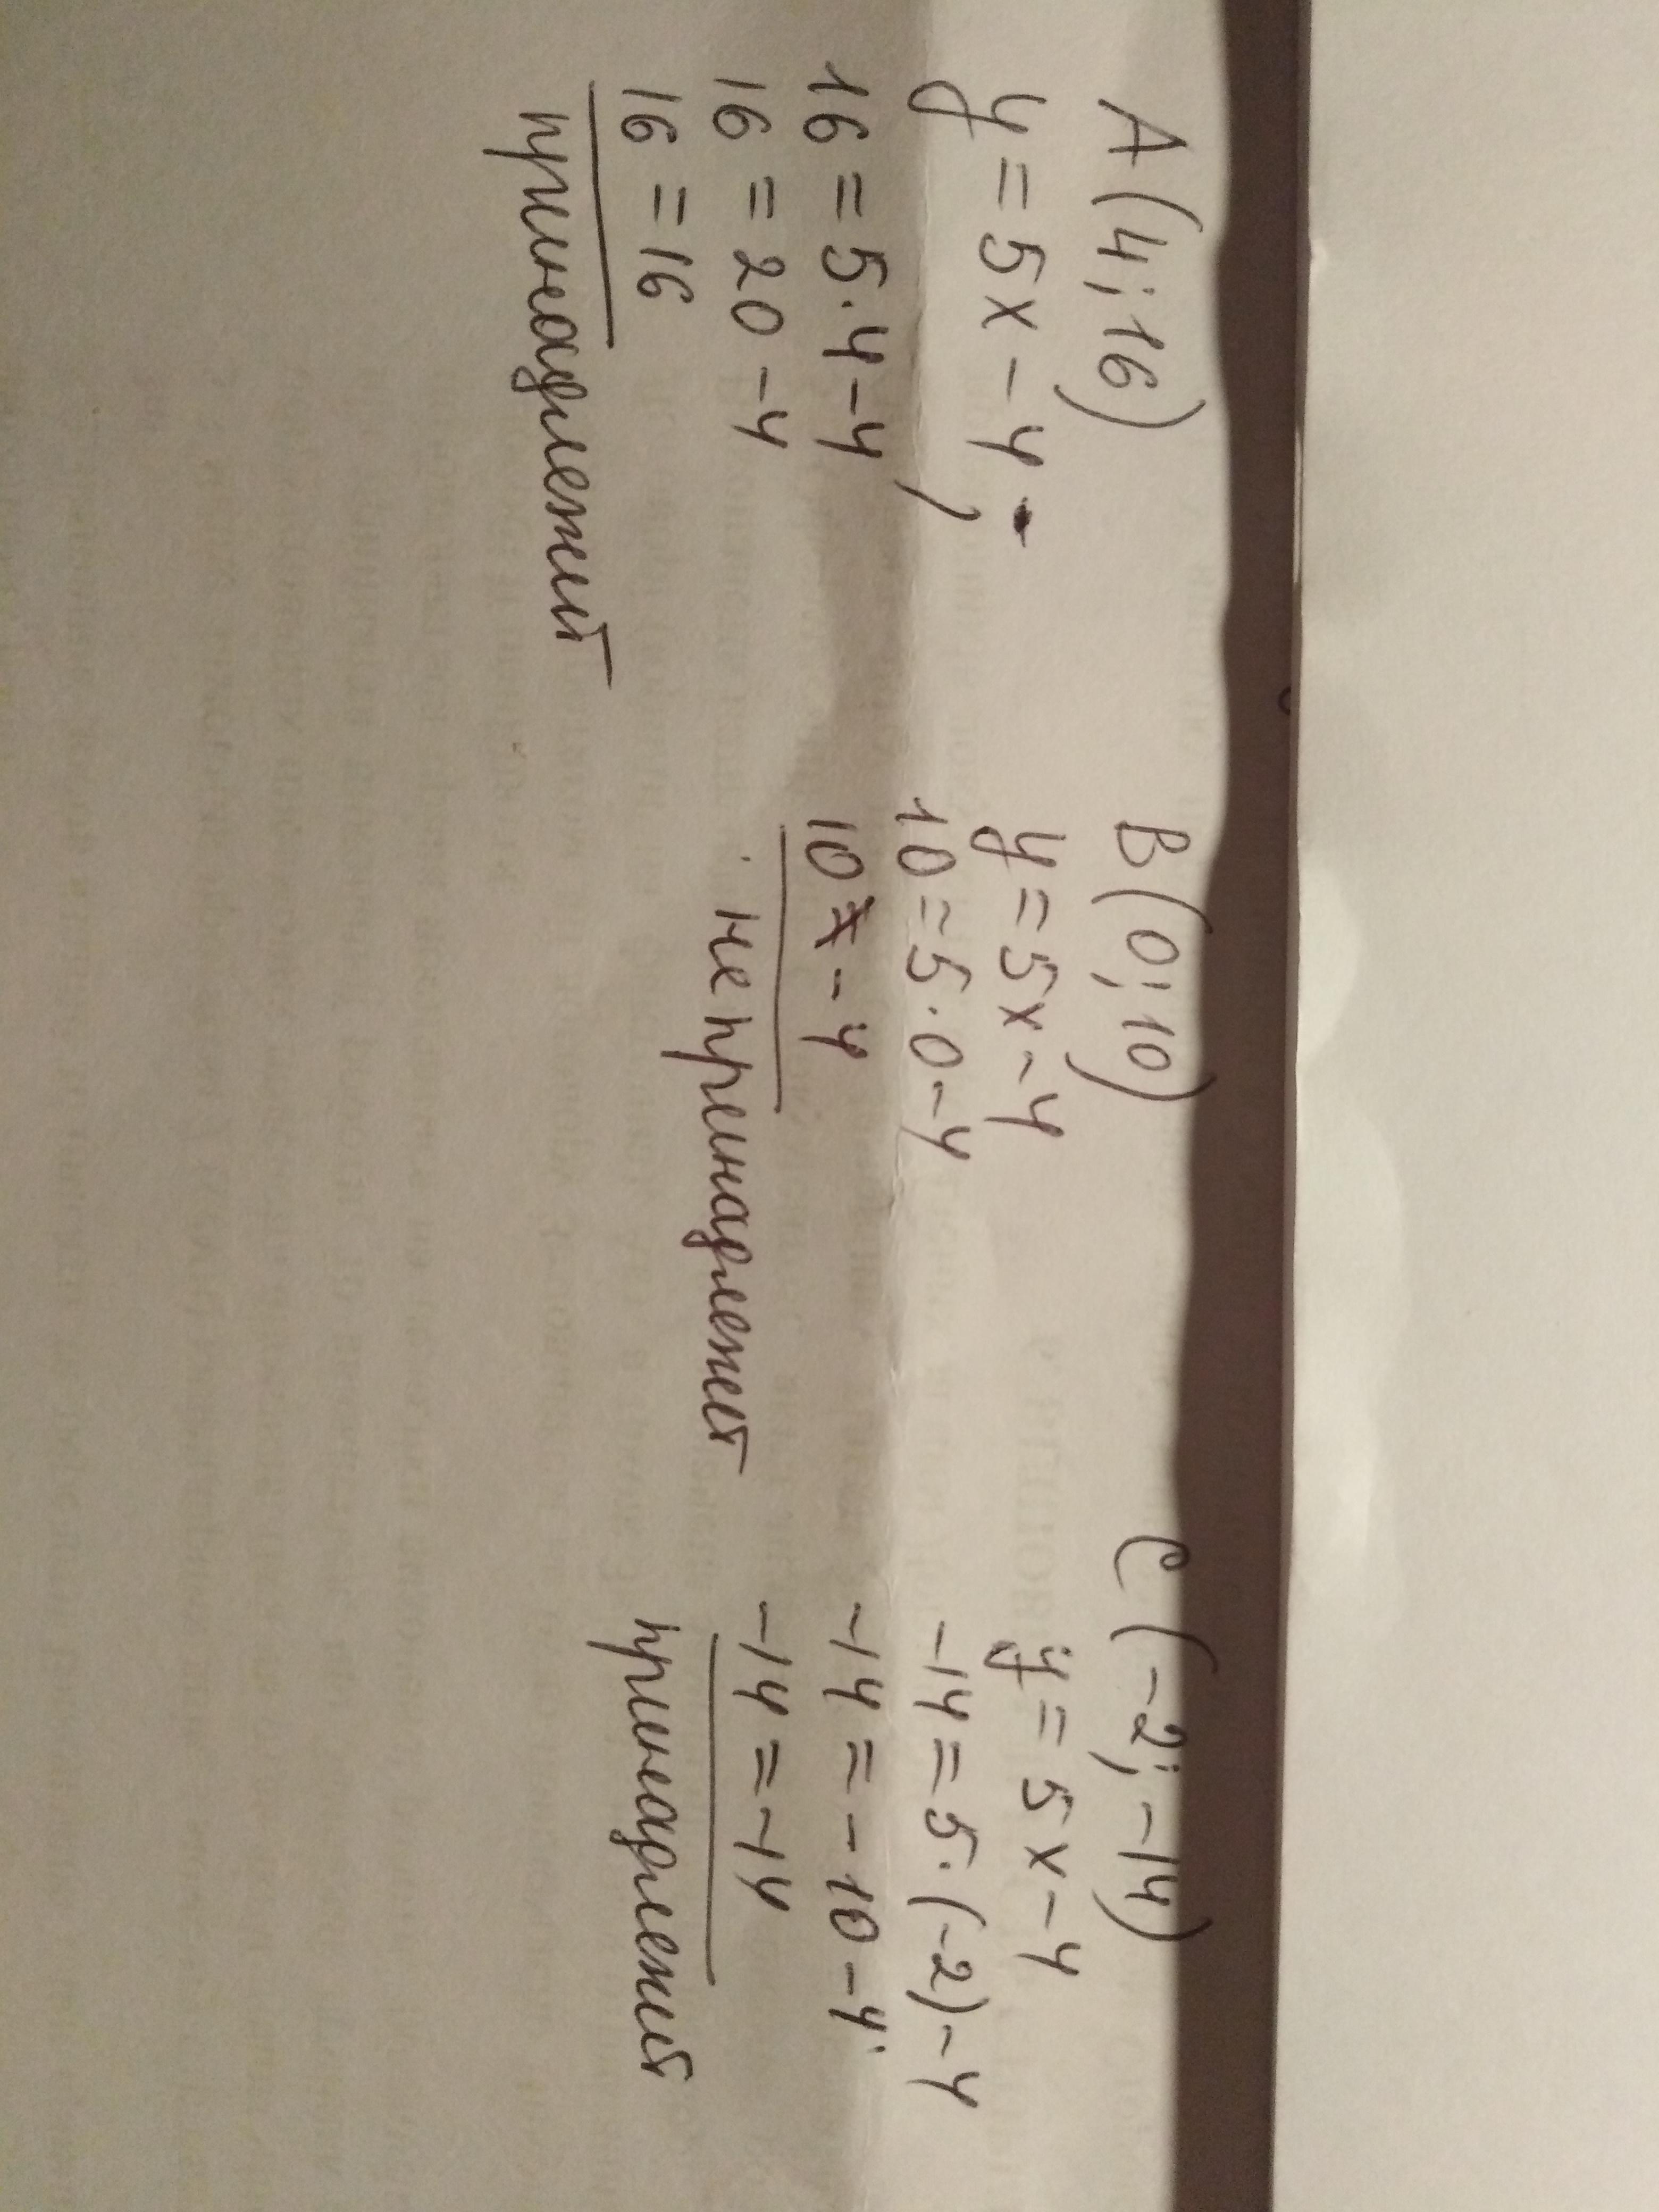 А(4; 16)
y = 5x - 4;
16 = 5·4-4
16 = 20-4
16 = 16
принадлежит
В(0; 10)
y = 5x-4
10=5·0-4
10≠-4
не принадлежит
С(-2; -14)
y = 5x-4
-14=5·(-2)-4
-14=-10-4
-14=-14
принадлежит